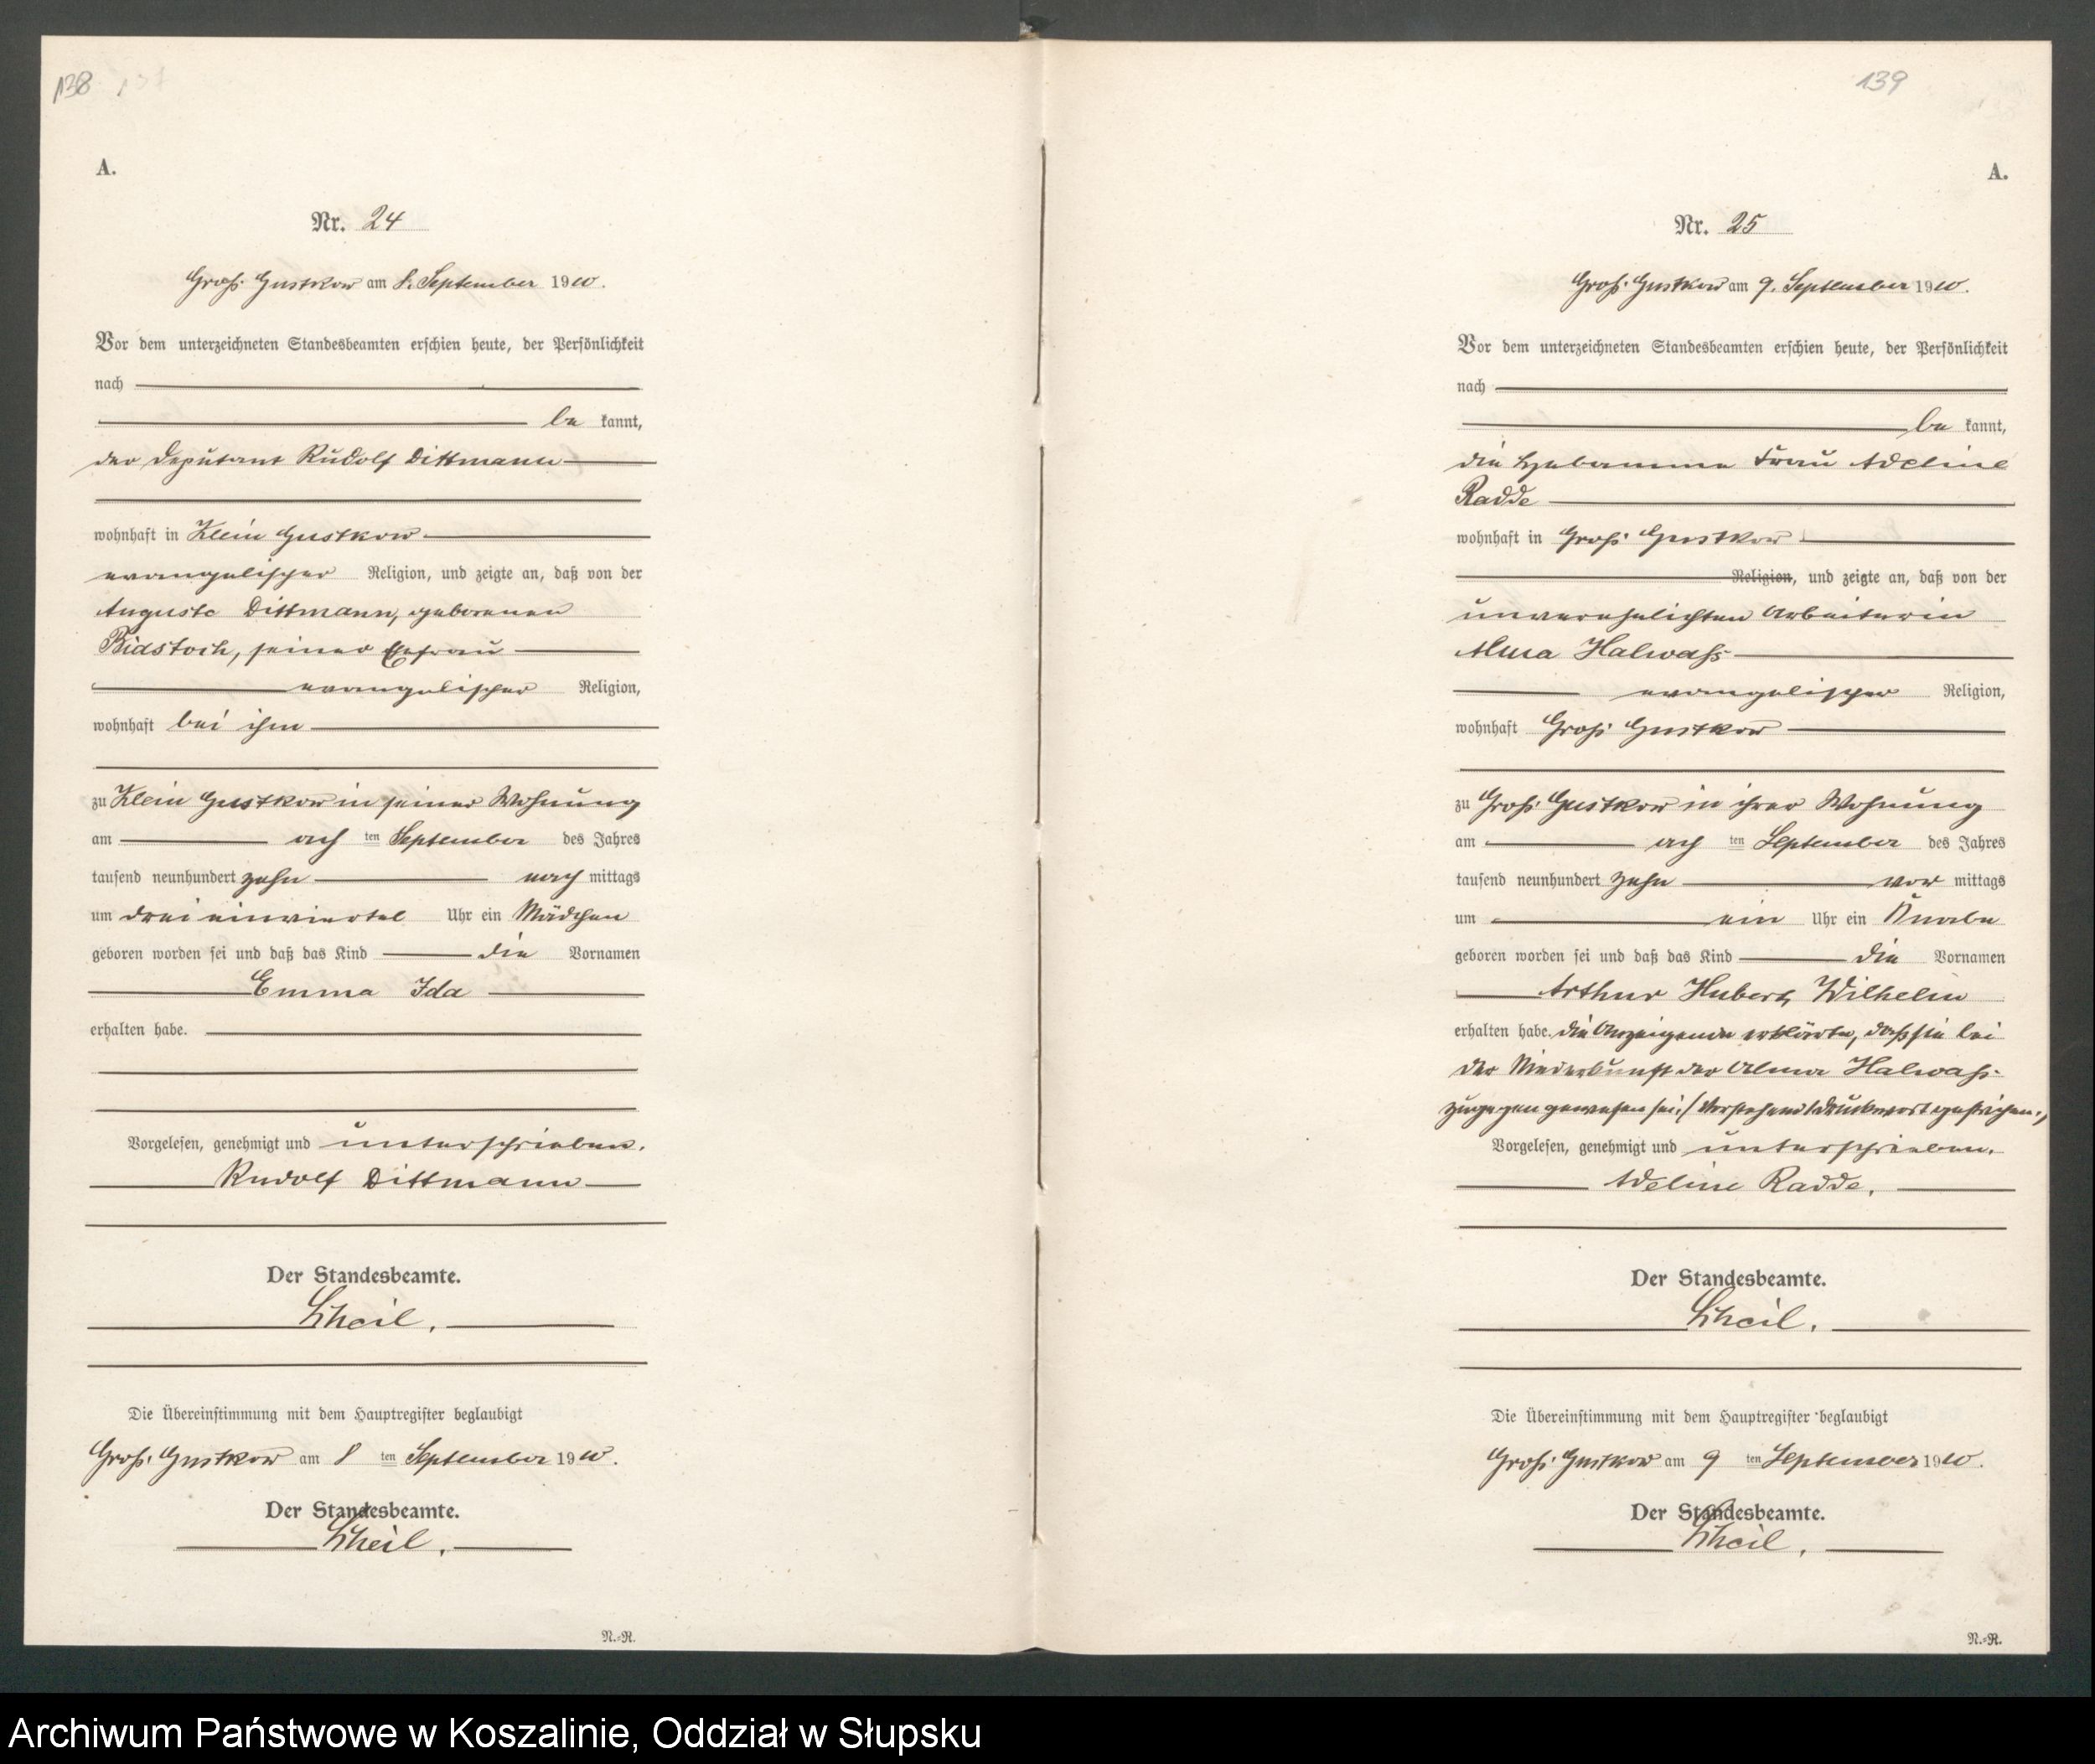 138
A.
Nr. 24
Groß Gustkow am 8. September 1910.
Vor dem unterzeichneten Standesbeamten erschien heute, der Persönlichkeit
nach
be kannt,
der Deputant Rudolf Dittmann
wohnhaft in Klein Gustkow
evangelischer Religion, und zeigte an, daß von der
Auguste Dittmann, geborenen
seiner Ehefrau
evangelischer Religion,
wohnhaft bei ihm
zu Klein Gustkow in seiner Wohnung
am ach ten September des Jahres
tausend neunhundert zehn nach mittags
um drei einviertel Uhr ein Mädchen
geboren worden sei und daß das Kind die Vornamen
Emma Ida
erhalten habe.
Vorgelesen, genehmigt und unterschrieben.
Rudolf Dittmann
Der Standesbeamte.
Scheil.
Die Übereinstimmung mit dem Hauptregister beglaubigt
Groß Gustkow am 8 ten September 1910.
Der Standesbeamte.
Scheil.
N.-R.
139
A.
Nr. 25
Groß Gustkow am 9. September 1910.
Vor dem unterzeichneten Standesbeamten erschien heute, der Persönlichkeit
nach
be kannt,
die Hebamme Frau Adeline
Radde
wohnhaft in Groß Gustkow
Religion, und zeigte an, daß von der
unverehelichten Arbeiterin
Alma Halwaß
evangelischer Religion,
wohnhaft Groß Gustkow
zu Groß Gustkow in ihrer Wohnung
am ach ten September des Jahres
tausend neunhundert zehn vor mittags
um ein Uhr ein Knabe
geboren worden sei und daß das Kind die Vornamen
Arthur Hubert Wilhelm
erhalten habe. Die Anzeigende erklärte, daß sie bei
der Niederkunft der Alma Halwaß
zugegen gewesen sei. / Vorstehend 1 Druckwort gestrichen.
Vorgelesen, genehmigt und unterschrieben.
Adeline Radde.
Der Standesbeamte.
Scheil.
Die Übereinstimmung mit dem Hauptregister beglaubigt
Groß Gustkow am 9 ten September 1910.
Der Standesbeamte.
Scheil.
N.-R.
Archiwum Państwowe w Koszalinie, Oddział w Słupsku